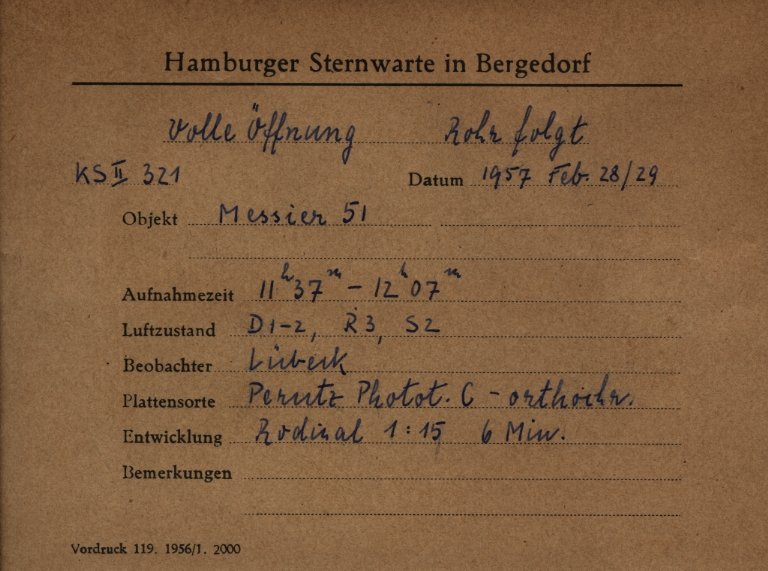 Hamburger Sternwarte in Bergedorf
Volle Öffnung Rohr folgt
KS II 321 Datum 1957 Feb. 28/29
Objekt Messier 51
Aufnahmezeit 11h 37m – 12h 07m
Luftzustand D1-2, R3, S2
Beobachter Lübeck
Plattensorte Perutz Photot. C - orthochr.
Entwicklung Rodinal 1:15 6 Min.
Bemerkungen
Vordruck 119. 1956/1. 2000